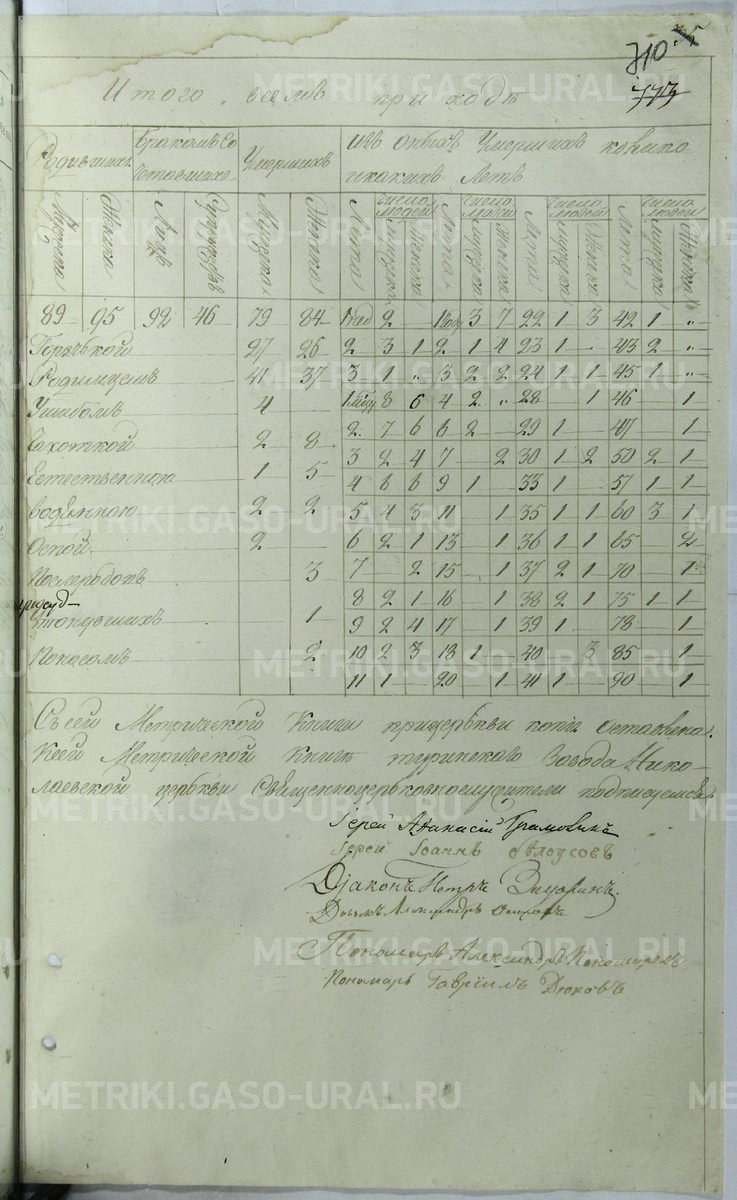 710
773
Итого всемъ приходѣ
Родившихъ
Бракомъ Со
четавшихся
Умершихъ
Изъ оныхъ Умершихъ колико
и какихъ Летъ
Мужеска
Женска
Лицъ
Мужеска
Женска
Лета
Число людей
Мужеска
Женска
Лета
Число людей
Мужеска
Женска
Лета
Число людей
Мужеска
Женска
Лета
Число людей
Мужеска
Женска
89 95 92 46 79 84 2 1 году 3 7 22 1 3 42 1 "
Горячкой 27 26 2 3 1 2 1 4 23 1 - 43 2 "
Родимцемъ 41 37 3 1 " 3 2 2 24 1 1 45 1 "
4 - 8 6 4 2 " 28 - 1 46 - 1
2 7 6 6 2 - 29 1 - 47 - 1
Сухоткой 2 8
3 2 4 7 - 2 30 1 2 50 2 1
Естественною 1 5
4 6 6 9 1 - 33 1 - 57 1 1
водянною 2 2 5 4 3 11 - 1 35 1 1 60 3 1
Оспой 2 - 6 2 1 13 - 1 36 1 1 65 - 2
3 7 - 2 15 - 1 37 2 1 70 - 1
8 2 1 16 - 1 38 2 1 75 1 1
- 1
9 2 4 17 - 1 39 1 - 78 - 1
Поносомъ - 2 10 2 3 18 1 - 40 - 3 85 - 1
11 1 - 20 - 1 41 1 - 90 - 1
Съ сей Метрической Книги прицерькви копiя оставлена.
Ксей Метрической Книге туринскаго Завода Нико-
лаевской церькви Священноцерьковнослужители подписуемся
Іерей Аѳанасій
Іерей Іоаннъ Бѣлоусовъ
Дiаконъ Петръ
Александръ
Пономарь Александръ Пономаревъ
Пономарь Гаврiилъ Дюковъ
METRIKI.GASO-URAL.RU